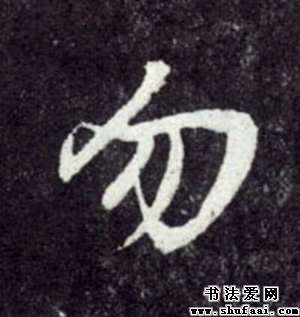 勿
书法爱网
www.shufaai.com